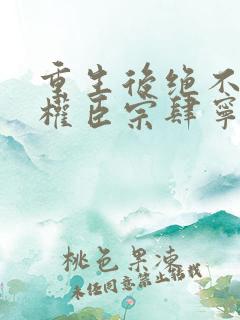 重生後绝不
權臣宗肆寧
桃色果凍
未经同意禁止转载